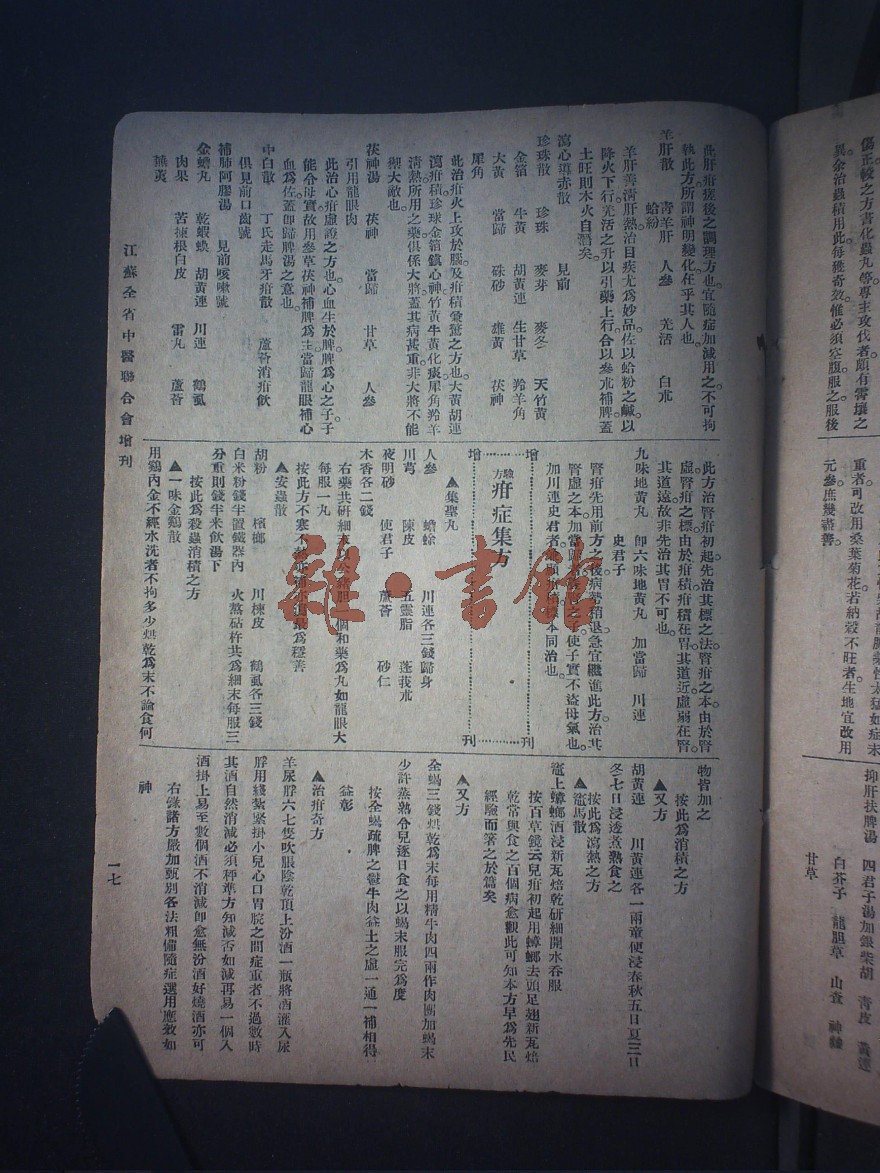 此肝疳瘥後之調理方也宜隨症加減用之不可拘
執此方所謂神明變化在乎其人也
羊肝散 青羊肝 人參 羌活 白朮
蛤粉
羊肝善清肝熱治目疾尤為妙品佐以蛤粉之鹹以
降火下行羌活之升以引藥上行合以參朮補脾蓋
土旺則木火自濳矣
瀉心導赤散 見前
珍珠散 珍珠 麥芽 麥冬 天竹黃
金箔 牛黃 胡黃連 生甘草 羚羊角
大黃 當歸 硃砂 雄黃 茯神
犀角
此治疳火上攻於腦及疳積兼驚之方也大黃胡連
瀉疳積珍珠金箔鎮心神竹黃牛黃化痰犀角羚羊
清熱所用之藥俱係大將蓋其病甚重非大將不能
禦大敵也
茯神湯 茯神 當歸 甘草 人參
引用龍眼肉
此治心疳虛證之方也心血生於脾脾為心之子子
能令母實故用參草茯神補脾為主當歸龍眼補心
血為佐蓋即歸脾湯之意也
中白散 丁氏走馬牙疳散 蘆薈消疳飲
俱見前口齒號
補肺阿膠湯 見前咳嗽號
金蟾丸 乾蝦蟆 胡黃連 川連 鶴虱
肉果 苦揀根白皮 雷丸 蘆薈
蕪荑
此方治腎疳初起先治其標之法腎疳之本由於腎
虛腎疳之標由於疳積疳積在胃其道近虛弱在腎
其道遠故非先治其胃不可也
九味地黃丸 卽六味地黃丸 加當歸 川連
史君子
腎疳先用前方之後病勢稍退急宜贍進此方治其
腎虛之本加當歸使子實不盜母氣也
加川連史君者本同治也
增刊 增刊
驗方 疳症集方
▲集聖丸
人參 蟾蜍 川連各三錢歸身
川芎 陳皮 五靈脂 蓬莪朮
夜明砂 使君子 蘆薈 砂仁
木香各二錢
右藥共研細末以公猪胆個和藥為丸如龍眼大
每服一丸
按此方不寒不最為穩善
▲安蟲散
胡粉 檳榔 川棟皮 鶴虱各三錢
白米粉錢半置鐵器內 火熬砧杵共為細末每服三
分重則錢半米飲湯下
按此為殺蟲消積之方
▲一味金鷄散
用鷄內金不經水洗者不拘多少烘乾為末不論食何
物皆加之
按此為消積之方
▲又方
胡黃連 川黃連各一兩童便浸春秋五日夏三日
冬七日浸透煮熟食之
按此為瀉熱之方
▲竈馬散
竈上蟑螂酒浸新瓦焙乾研細開水吞服
按百草鏡云兒疳初起用蟑螂去頭足翅新瓦焙
乾常與食之百個病愈觀此可知本方早為先民
經驗而箸之於篇矣
▲又方
全蝎三錢烘乾為末每用精牛肉四兩作肉團加蝎末
少許蒸熟令兒逐日食之以蝎末服完為度
按全蝎疏脾之鬱牛肉益土之虛一通一補相得
益彰
▲治疳奇方
羊尿脬六七隻吹脹陰乾頂上汾酒一瓶將酒灌入尿
脬用綫紮緊掛小兒心口胃脘之間症重者不過數時
其酒自然消減必須秤準方知減否如減再易一個入
酒掛上易至數個酒不消減卽愈無汾酒好燒酒亦可
右錄諸方嚴加甄別各法粗備隨症選用應效如
神
江蘇全省中醫聯合會增刊
一七
傷正較之方書化蟲丸等專主攻伐者頗有霄壤之
異余治蟲積用此每獲奇效惟必須空腹服之服後
重者可改用桑葉菊花若納穀不旺者生地宜改用
元參庶幾盡善
抑肝扶脾湯 四君子湯加銀柴胡 青皮 黃連
白芥子 龍胆草 山查 神麯
甘草
雜·書館